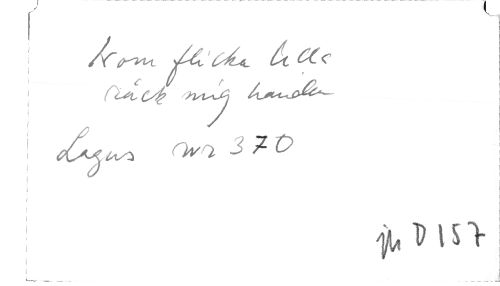 Kom flicka lilla
räck mig handen
Lagus nr 370
jfr D 157